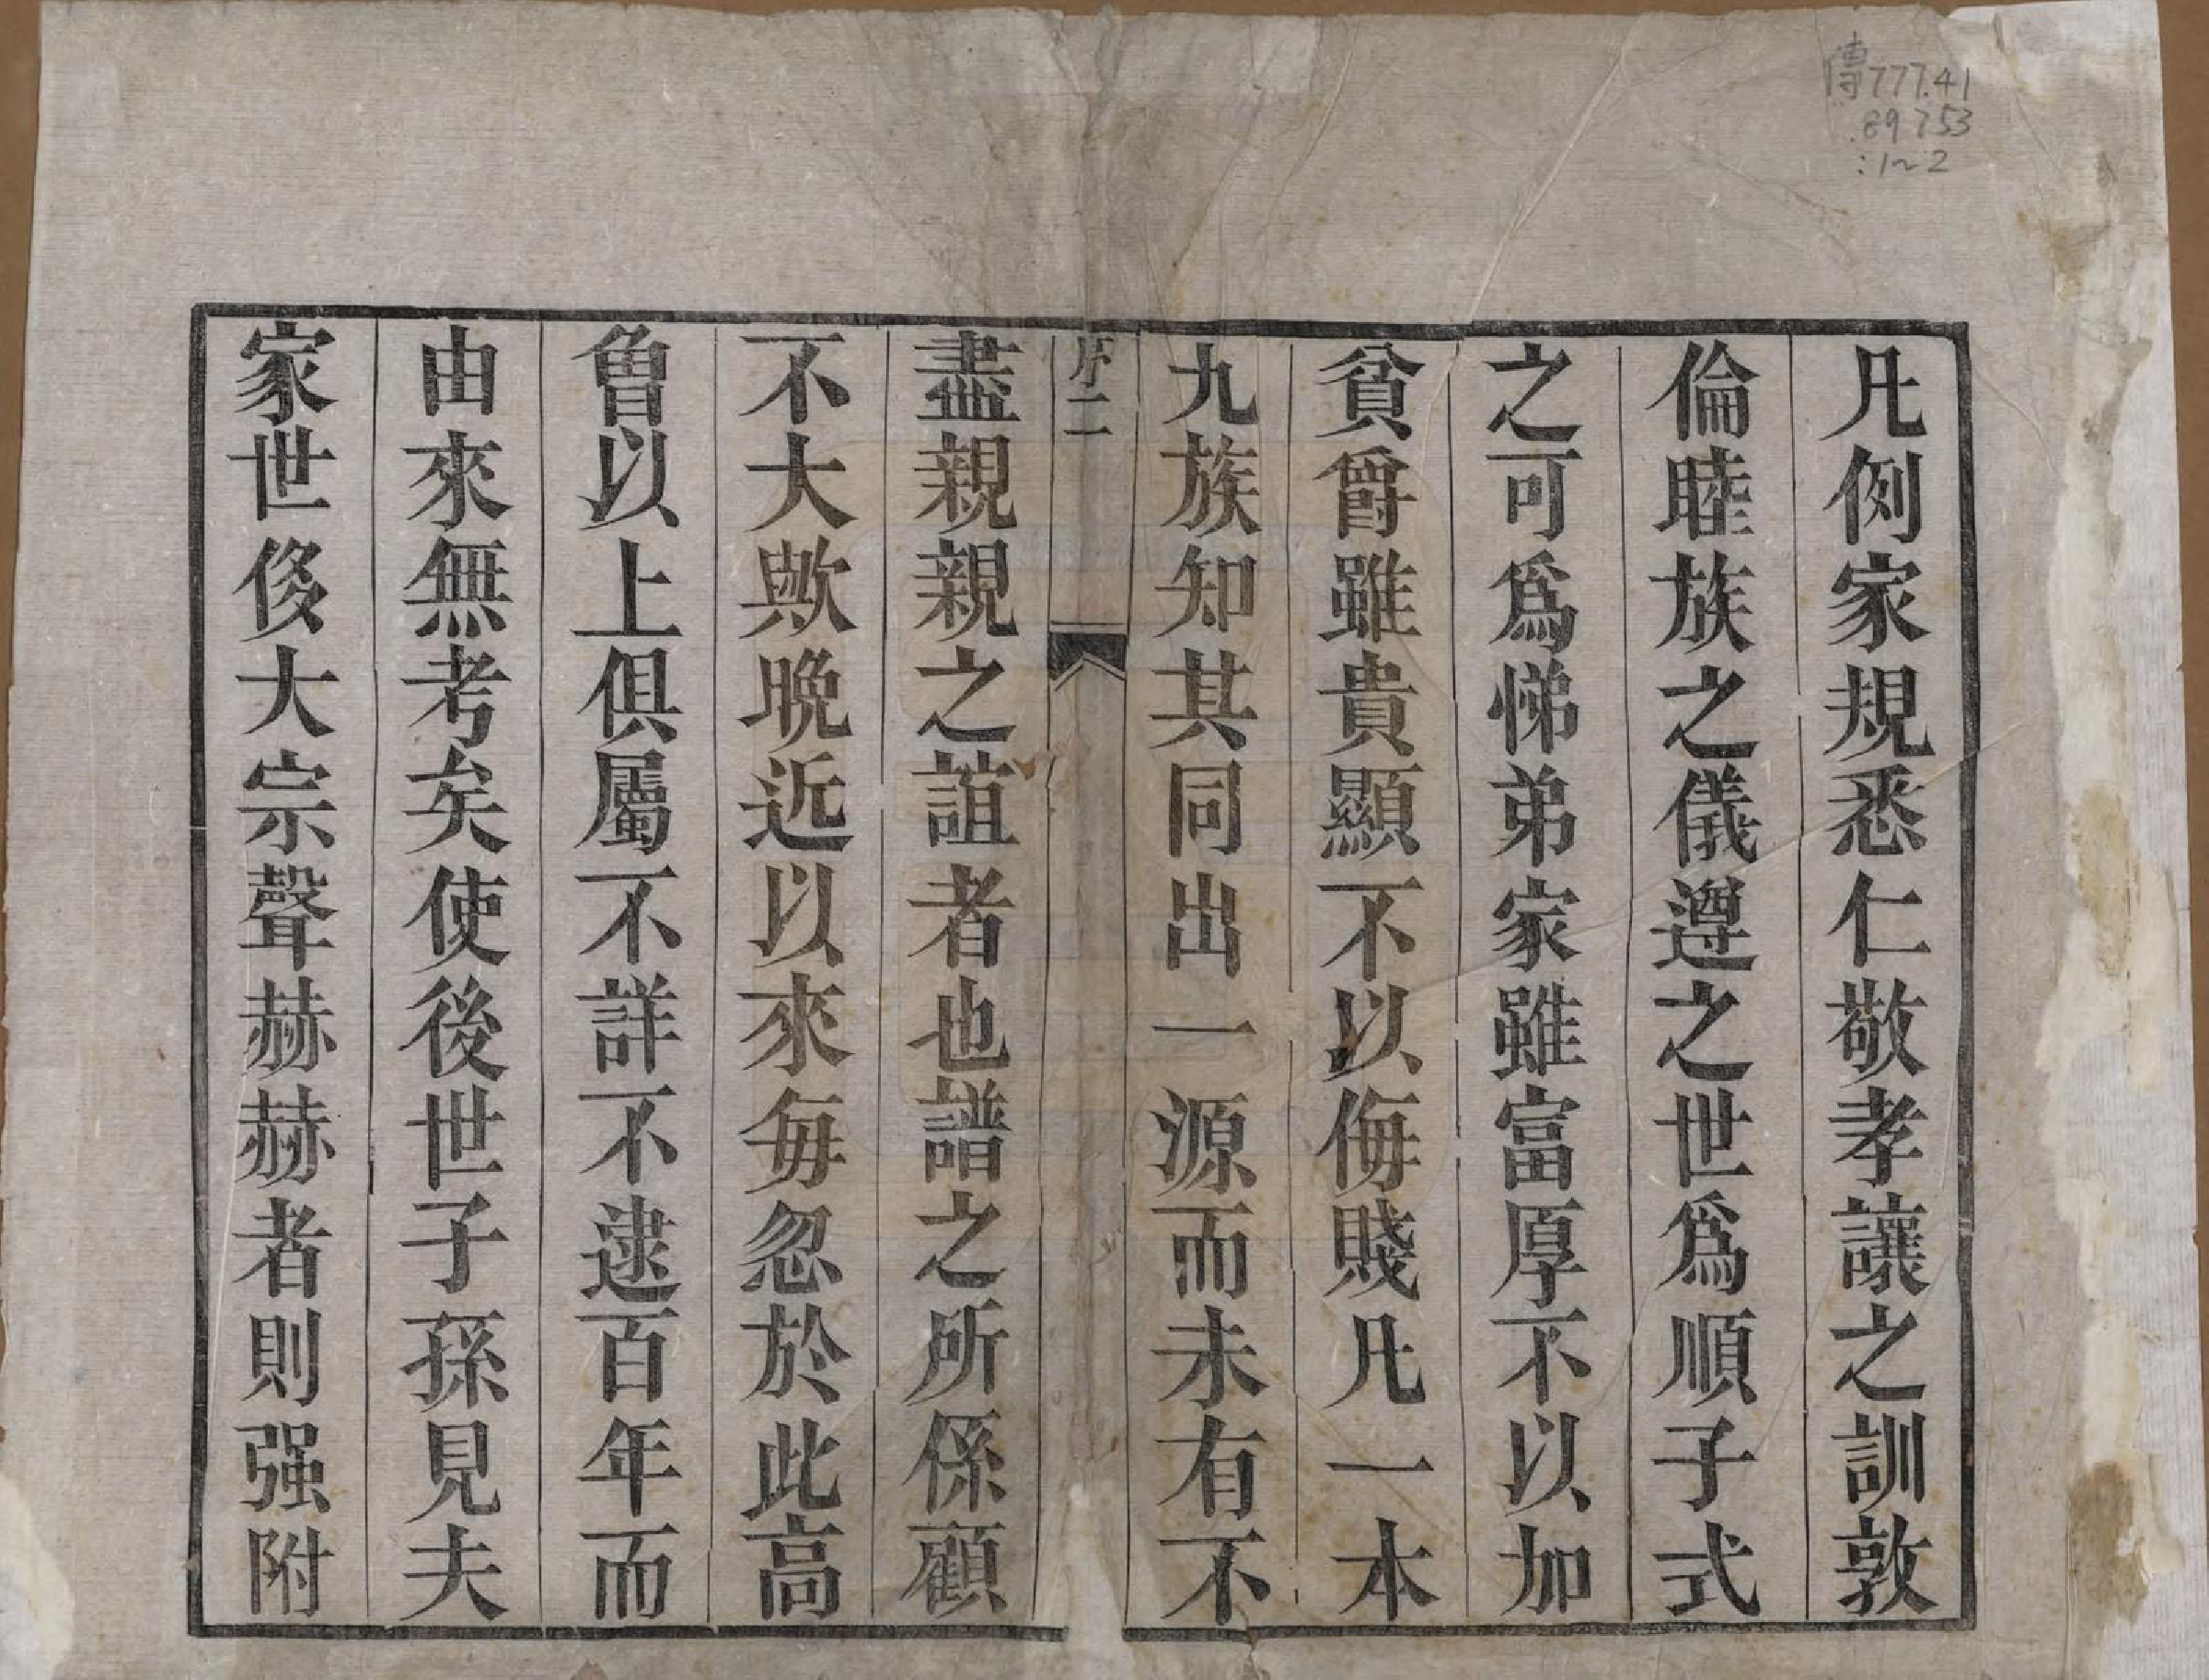 傳777.41
.89753
:1~2
凡例家規悉仁敬孝讓之訓敦
倫睦族之儀遵之世爲順子式
之可爲悌弟家雖富厚不以加
貧爵雖貴顯不以侮賤凡一本
九族知其同出一源而未有不
序二
盡親親之誼者也譜之所係顧
不大歟晚近以來每忽於此高
曾以上俱屬不詳不逮百年而
由來無考矣使後世子孫見夫
家世侈大宗聲赫赫者則强附